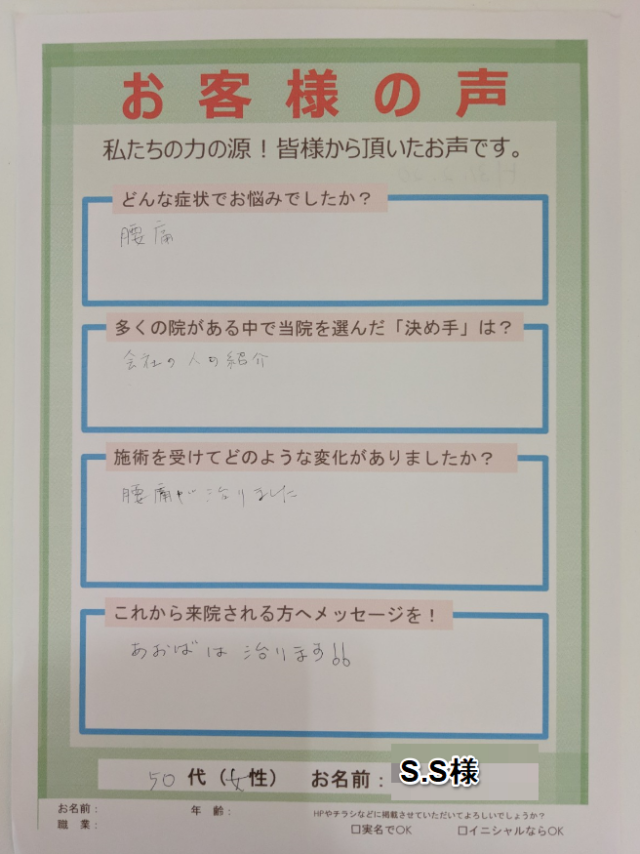 お客様の声
私たちの力の源！皆様から頂いたお声です。
どんな症状でお悩みでしたか？
腰痛
多くの院がある中で当院を選んだ「決め手」は？
会社の人の紹介
施術を受けてどのような変化がありましたか？
腰痛が治りました
これから来院される方へメッセージを！
あおばは治ります!!
50代（女性） お名前：S.S様
お名前： 年 齢：
職 業：
HPやチラシなどに掲載させていただいてよろしいでしょうか？
□実名でOK □イニシャルならOK